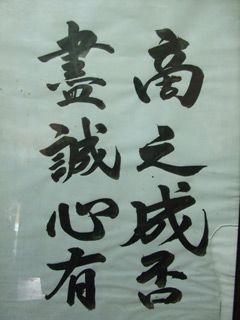 商之成否
盡誠心有